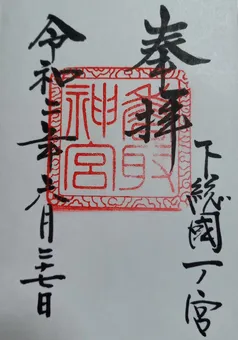 奉拝
下総國一ノ宮
香取神宮
令和二年六月二十七日